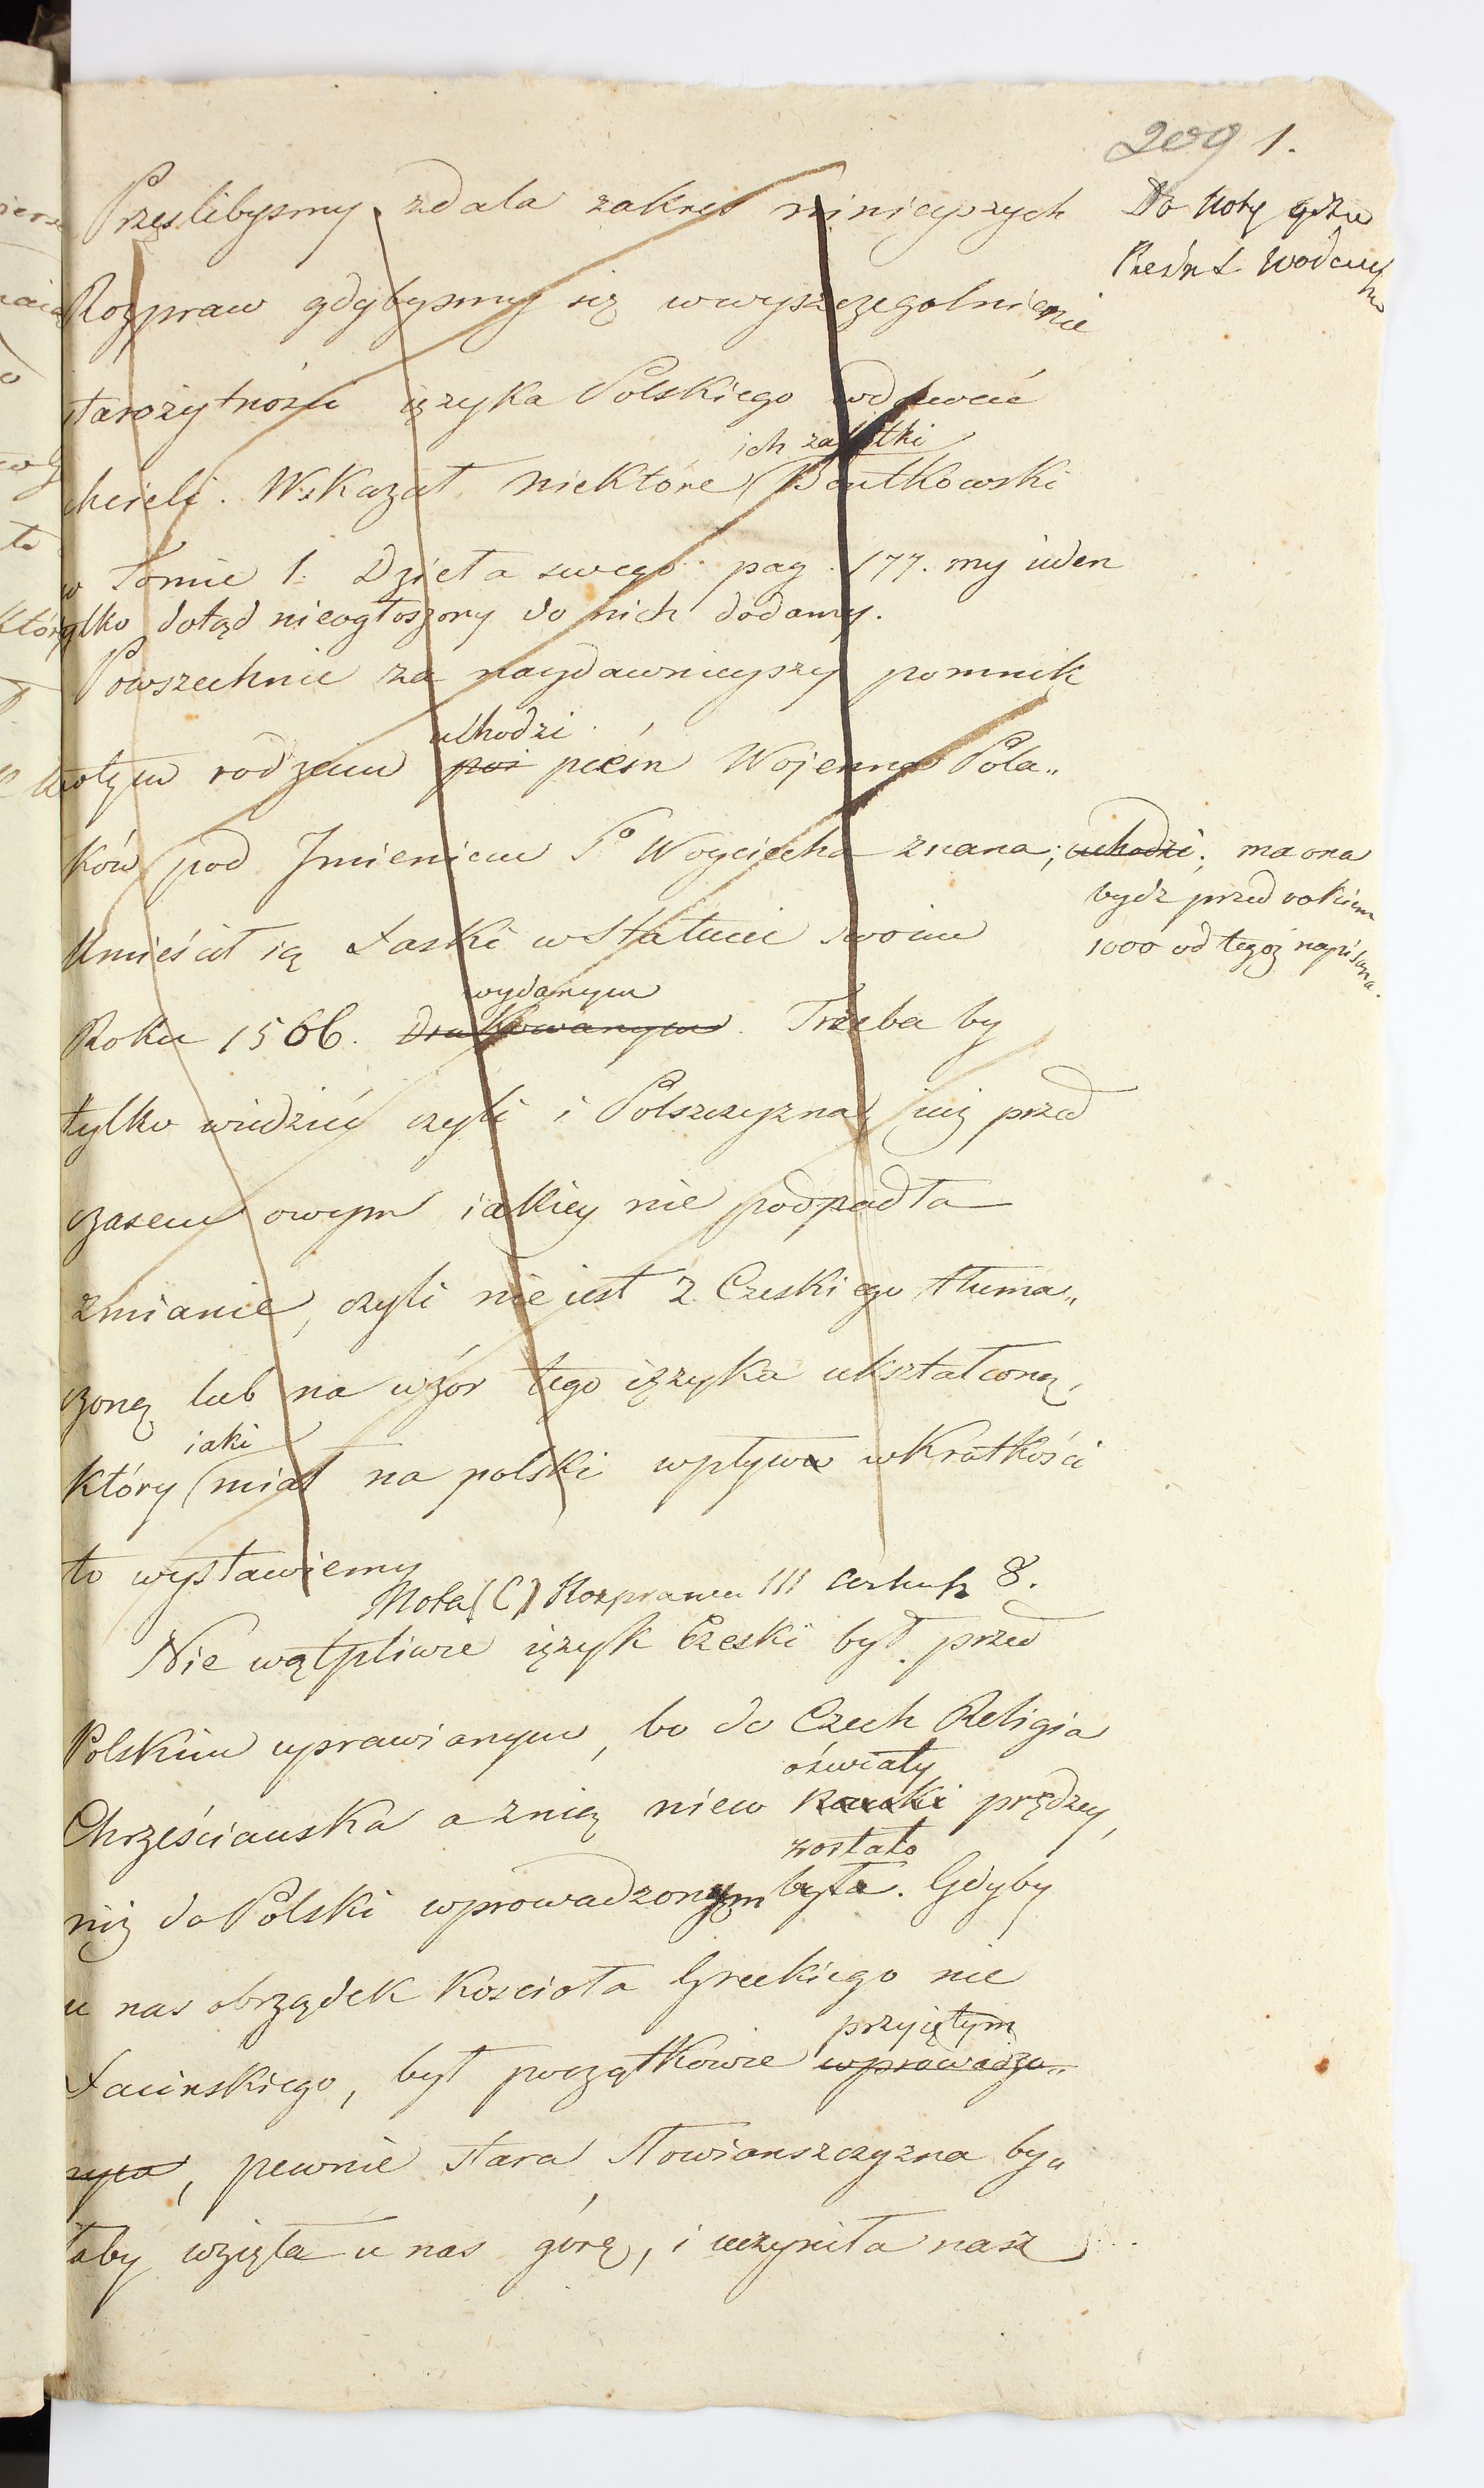 209 1.
Do Noty gdzie
Pieśń S Woyciecha
Prześlibysmy zdala zakres ninieyszych
Rozpraw gdybysmy się wwyszczegolnienie
starożytności ięzyka Polskiego wdawać
ich zabytki
chcieli. Wskazał niektóre Bentkowski
w Tomie 1. Dzieła swego pag. 177. my ieden
tylko dotąd nieogłoszony do nich dodamy.
Powszechnie za naydawnieyszy pomnik
uchodzi
wtym rodzaiu pieśń Wojenna Pola„
ków pod Imieniem S Woyciecha znana; uchodzi; ma ona
bydz przed rokiem
1000 od tegoż napisana.
Umieścił ią Łaski w Statucie swoim
wydanym
Roku 1506. drukowanym. Trzeba by
tylko widzieć czyli i Polszczyzna iuż przed
czasem owym iakiey nie podpadła
zmianie, czyli nie iest z Czeskiego tłuma„
czoną lub na wzór tego ięzyka ukształconą,
iaki
który miał na polski wpływ wkrotkości
to wystawiemy
Nota (C) Rozprawa III arkusz 8.
Nie wątpliwie ięzyk Czeski był przed
Polskim uprawianym, bo do Czech Religia
oświaty
Chrześcianska a znią niew nauki prędzey,
zostało
niż do Polski wprowadzonym była. Gdyby
u nas obrządek Kosciola Greckiego nie
przyiętym
Łacinskiego, był początkowie wprowadzo„
nym, pewnie stara Słowianszczyzna by„
łaby wzięła u nas górę, i uczyniła nasz